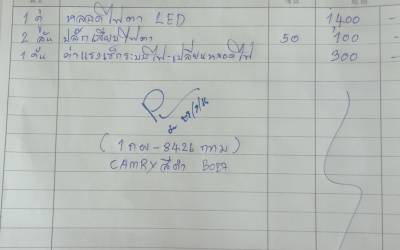 1 คู่ หลอดไฟตา LED 1400 -
2 อัน ปลั๊กเสียบไฟตา 50 100 -
1 คัน ค่าแรงเช็กระบบไฟ-เปลี่ยนหลอดไฟ 900 -
(1กผ-8426 กทม)
CAMRY สีดำ